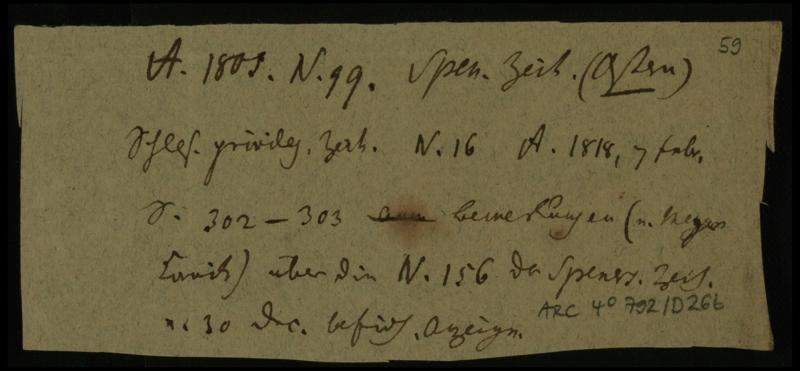 59
A. 1805. N. 99. Spen. Zeit. (Ostern)
Schles. privileg. Zeit. N. 16 A. 1818, 7 Febr.
S. 302 – 303 Bemerkungen (
) über die N. 156 der Spener. Zeit.
30 Dec. befindl. Anzeige.
ARC 4° 792/D26b